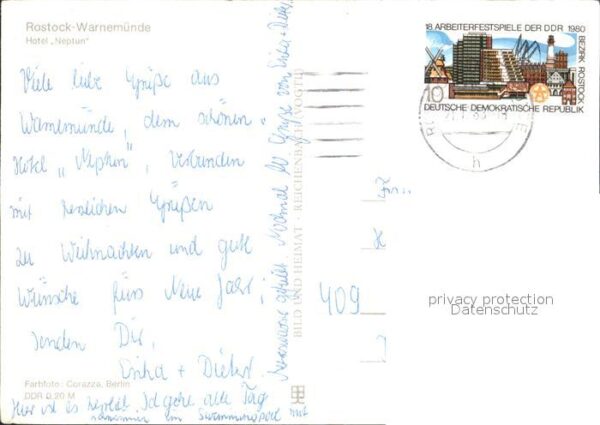 Rostock-Warnemünde
Hotel „Neptun"
Viele liebe Grüße aus
Warnemünde, dem schönen
Hotel „Neptun", verbunden
mit herzlichen Grüßen
zu Weihnachten und gute
Wünsche fürs Neue Jahr,
senden Dir,
Erika + Dieter.
Farbfoto: Corazza, Berlin
DDR 0,20 M
Hier ist es herrlich. Ich gehe alle Tag
schwimmen im Swimmingpool
Nochmal Grüße von Erika + Dieter
BILD UND HEIMAT · REICHENBACH (VOGTL)
18. ARBEITERFESTSPIELE DER DDR 1980
BEZIRK ROSTOCK
10
DEUTSCHE DEMOKRATISCHE REPUBLIK
h
409
privacy protection
Datenschutz